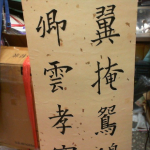 翼掩鴛
卿雲孝